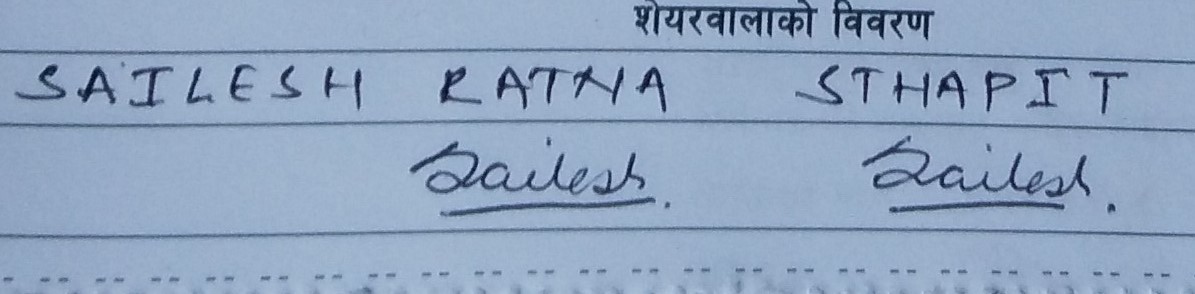 शेयरवालाको विवरण
SAILESH RATNA STHAPIT
Sailesh. Sailesh.